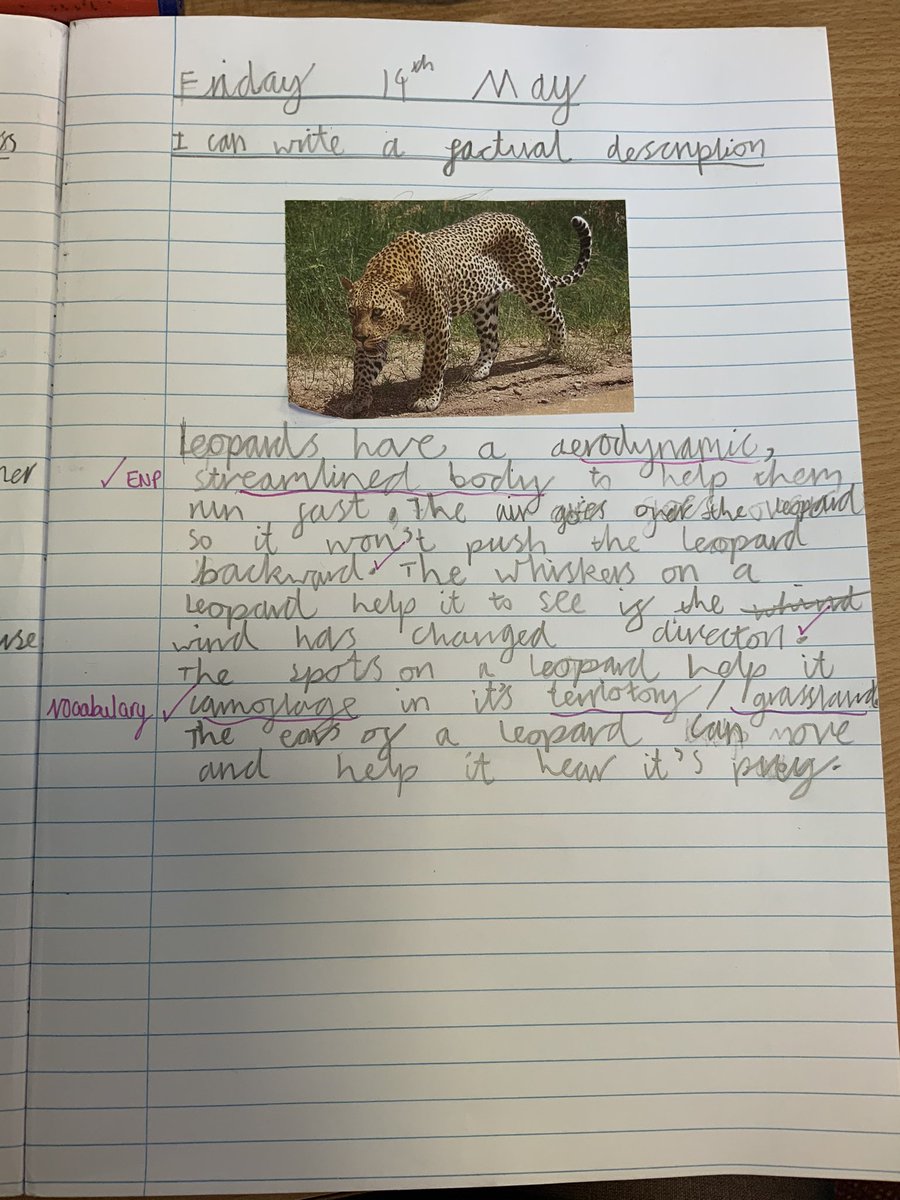 ss
Friday 14th May
I can write a factual description
Leopards have a aerodynamic,
ner ✓ ENP streamlined body to help them
run fast. The air goes over the leopard
so it won't push the leopard
backward. The whiskers on a
Leopard help it to see if the
use wind has changed directon.
The spots on a leopard help it
vocabulary ✓ camoflage in it's terrotory / grassland.
The ears of a leopard can move
and help it hear it's prey.